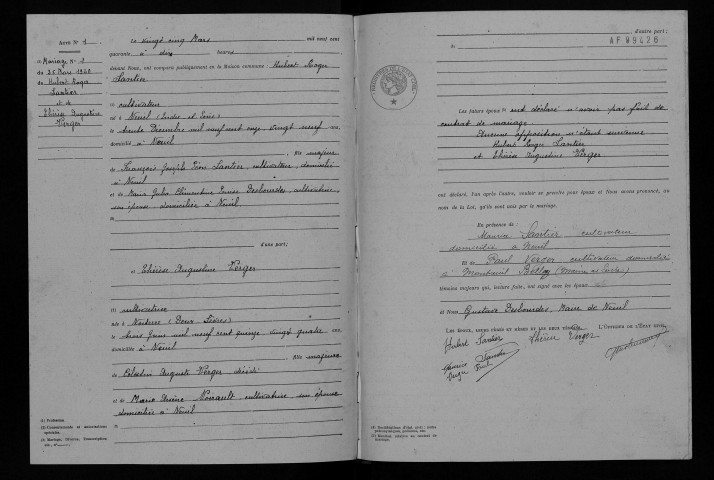 Acte N° 1
(3) Mariage N° 1
du 25 Mars 1940
de Hubert Roger
Santier
et de
Thérèse Augustine
Verger
Le vingt cinq Mars mil neuf cent
quarante à dix heures
devant Nous, ont comparu publiquement en la Maison commune : Hubert Roger
Santier
(1) cultivateur
né à Neuil (Indre et Loire)
le trente Décembre mil neuf cent onze, vingt neuf ans,
domicilié à Neuil
fils majeur
de François Joseph Santier, cultivateur, domicilié
à Neuil
et de Marie Julia Clémentine Desbourdes, cultivatrice,
son épouse domiciliée à Neuil
d'une part ;
et Thérèse Augustine Verger
(1) cultivatrice
née à (Deux Sèvres)
le trois Juin mil neuf cent quinze, vingt quatre ans,
domiciliée à Neuil
fille majeure
de Auguste Verger décédé
et de Marie, cultivatrice, son épouse
domiciliée à Neuil
(1) Profession.
(2) Consentements et autorisations
spéciales.
(3) Mariage, Divorce, Transcription
d'autre part ;
AF 99426
Les futurs époux ont déclaré n'avoir pas fait de
contrat de mariage
Aucune opposition n'étant survenue
Hubert Roger Santier
et Thérèse Augustine Verger
ont déclaré, l'un après l'autre, vouloir se prendre pour époux et Nous avons prononcé, au
nom de la Loi, qu'ils sont unis par le mariage.
En présence de :
Maurice Santier cultivateur
domicilié à Neuil
et de Paul Verger cultivateur domicilié
à
témoins majeurs qui, lecture faite, ont signé avec les époux
et Nous, Gustave Desbourdes, Maire de Neuil
Les époux, leurs pères et mères et les deux témoins, L'Officier de l'État civil,
Hubert Santier Thérèse Verger
Maurice Santier
Verger Paul